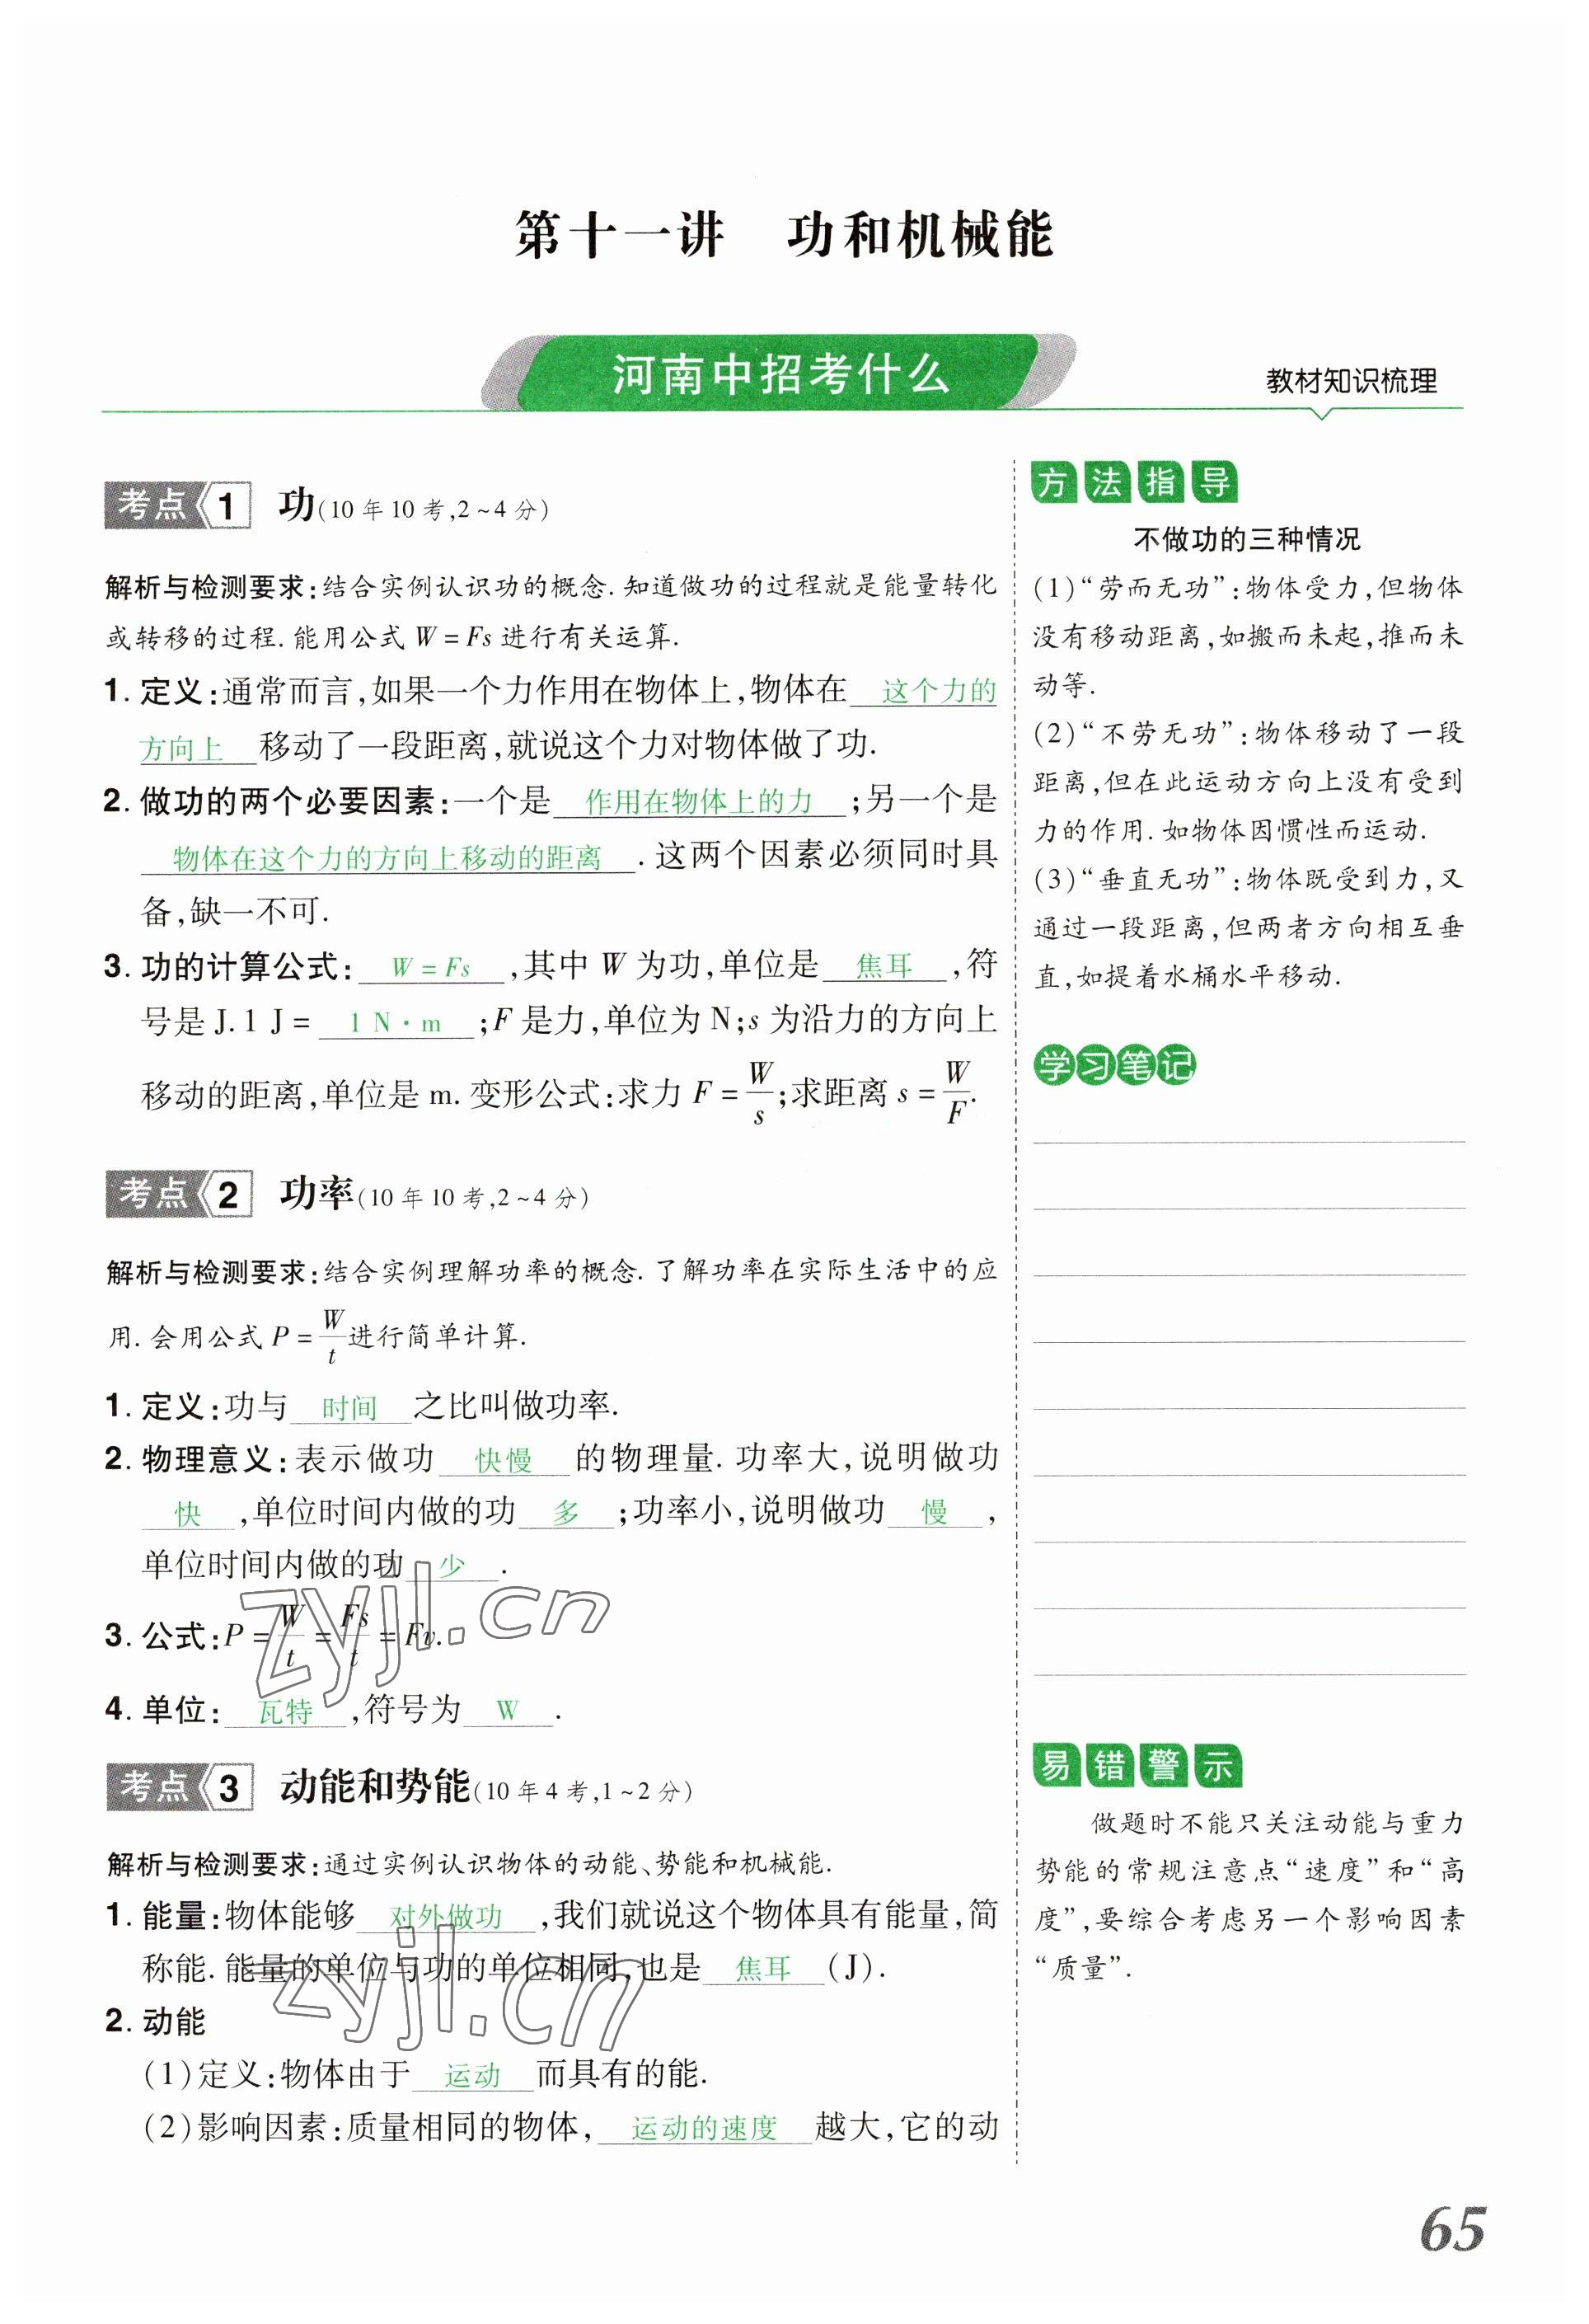 第十一讲 功和机械能
河南中招考什么
教材知识梳理
考点1 功(10年10考,2~4分)
解析与检测要求:结合实例认识功的概念.知道做功的过程就是能量转化
或转移的过程.能用公式W=Fs进行有关运算.
1.定义:通常而言,如果一个力作用在物体上,物体在 这个力的
方向上 移动了一段距离,就说这个力对物体做了功.
2.做功的两个必要因素:一个是 作用在物体上的力 ;另一个是
物体在这个力的方向上移动的距离 .这两个因素必须同时具
备,缺一不可.
3.功的计算公式: W=Fs ,其中W为功,单位是 焦耳 ,符
号是J.1 J= 1 N·m ;F是力,单位为N;s为沿力的方向上
移动的距离,单位是m.变形公式:求力F=W/s;求距离s=W/F.
考点2 功率(10年10考,2~4分)
解析与检测要求:结合实例理解功率的概念.了解功率在实际生活中的应
用.会用公式P=W/t进行简单计算.
1.定义:功与 时间 之比叫做功率.
2.物理意义:表示做功 快慢 的物理量.功率大,说明做功
快 ,单位时间内做的功 多 ;功率小,说明做功 慢 ,
单位时间内做的功 少 .
3.公式:P=W/t=Fs/t=Fv.
4.单位: 瓦特 ,符号为 W .
考点3 动能和势能(10年4考,1~2分)
解析与检测要求:通过实例认识物体的动能、势能和机械能.
1.能量:物体能够 对外做功 ,我们就说这个物体具有能量,简
称能.能量的单位与功的单位相同,也是 焦耳 (J).
2.动能
(1)定义:物体由于 运动 而具有的能.
(2)影响因素:质量相同的物体, 运动的速度 越大,它的动
方法指导
不做功的三种情况
(1)“劳而无功”:物体受力,但物体
没有移动距离,如搬而未起,推而未
动等.
(2)“不劳无功”:物体移动了一段
距离,但在此运动方向上没有受到
力的作用.如物体因惯性而运动.
(3)“垂直无功”:物体既受到力,又
通过一段距离,但两者方向相互垂
直,如提着水桶水平移动.
学习笔记
易错警示
做题时不能只关注动能与重力
势能的常规注意点“速度”和“高
度”,要综合考虑另一个影响因素
“质量”.
zyjl.cn
zyjl.cn
65